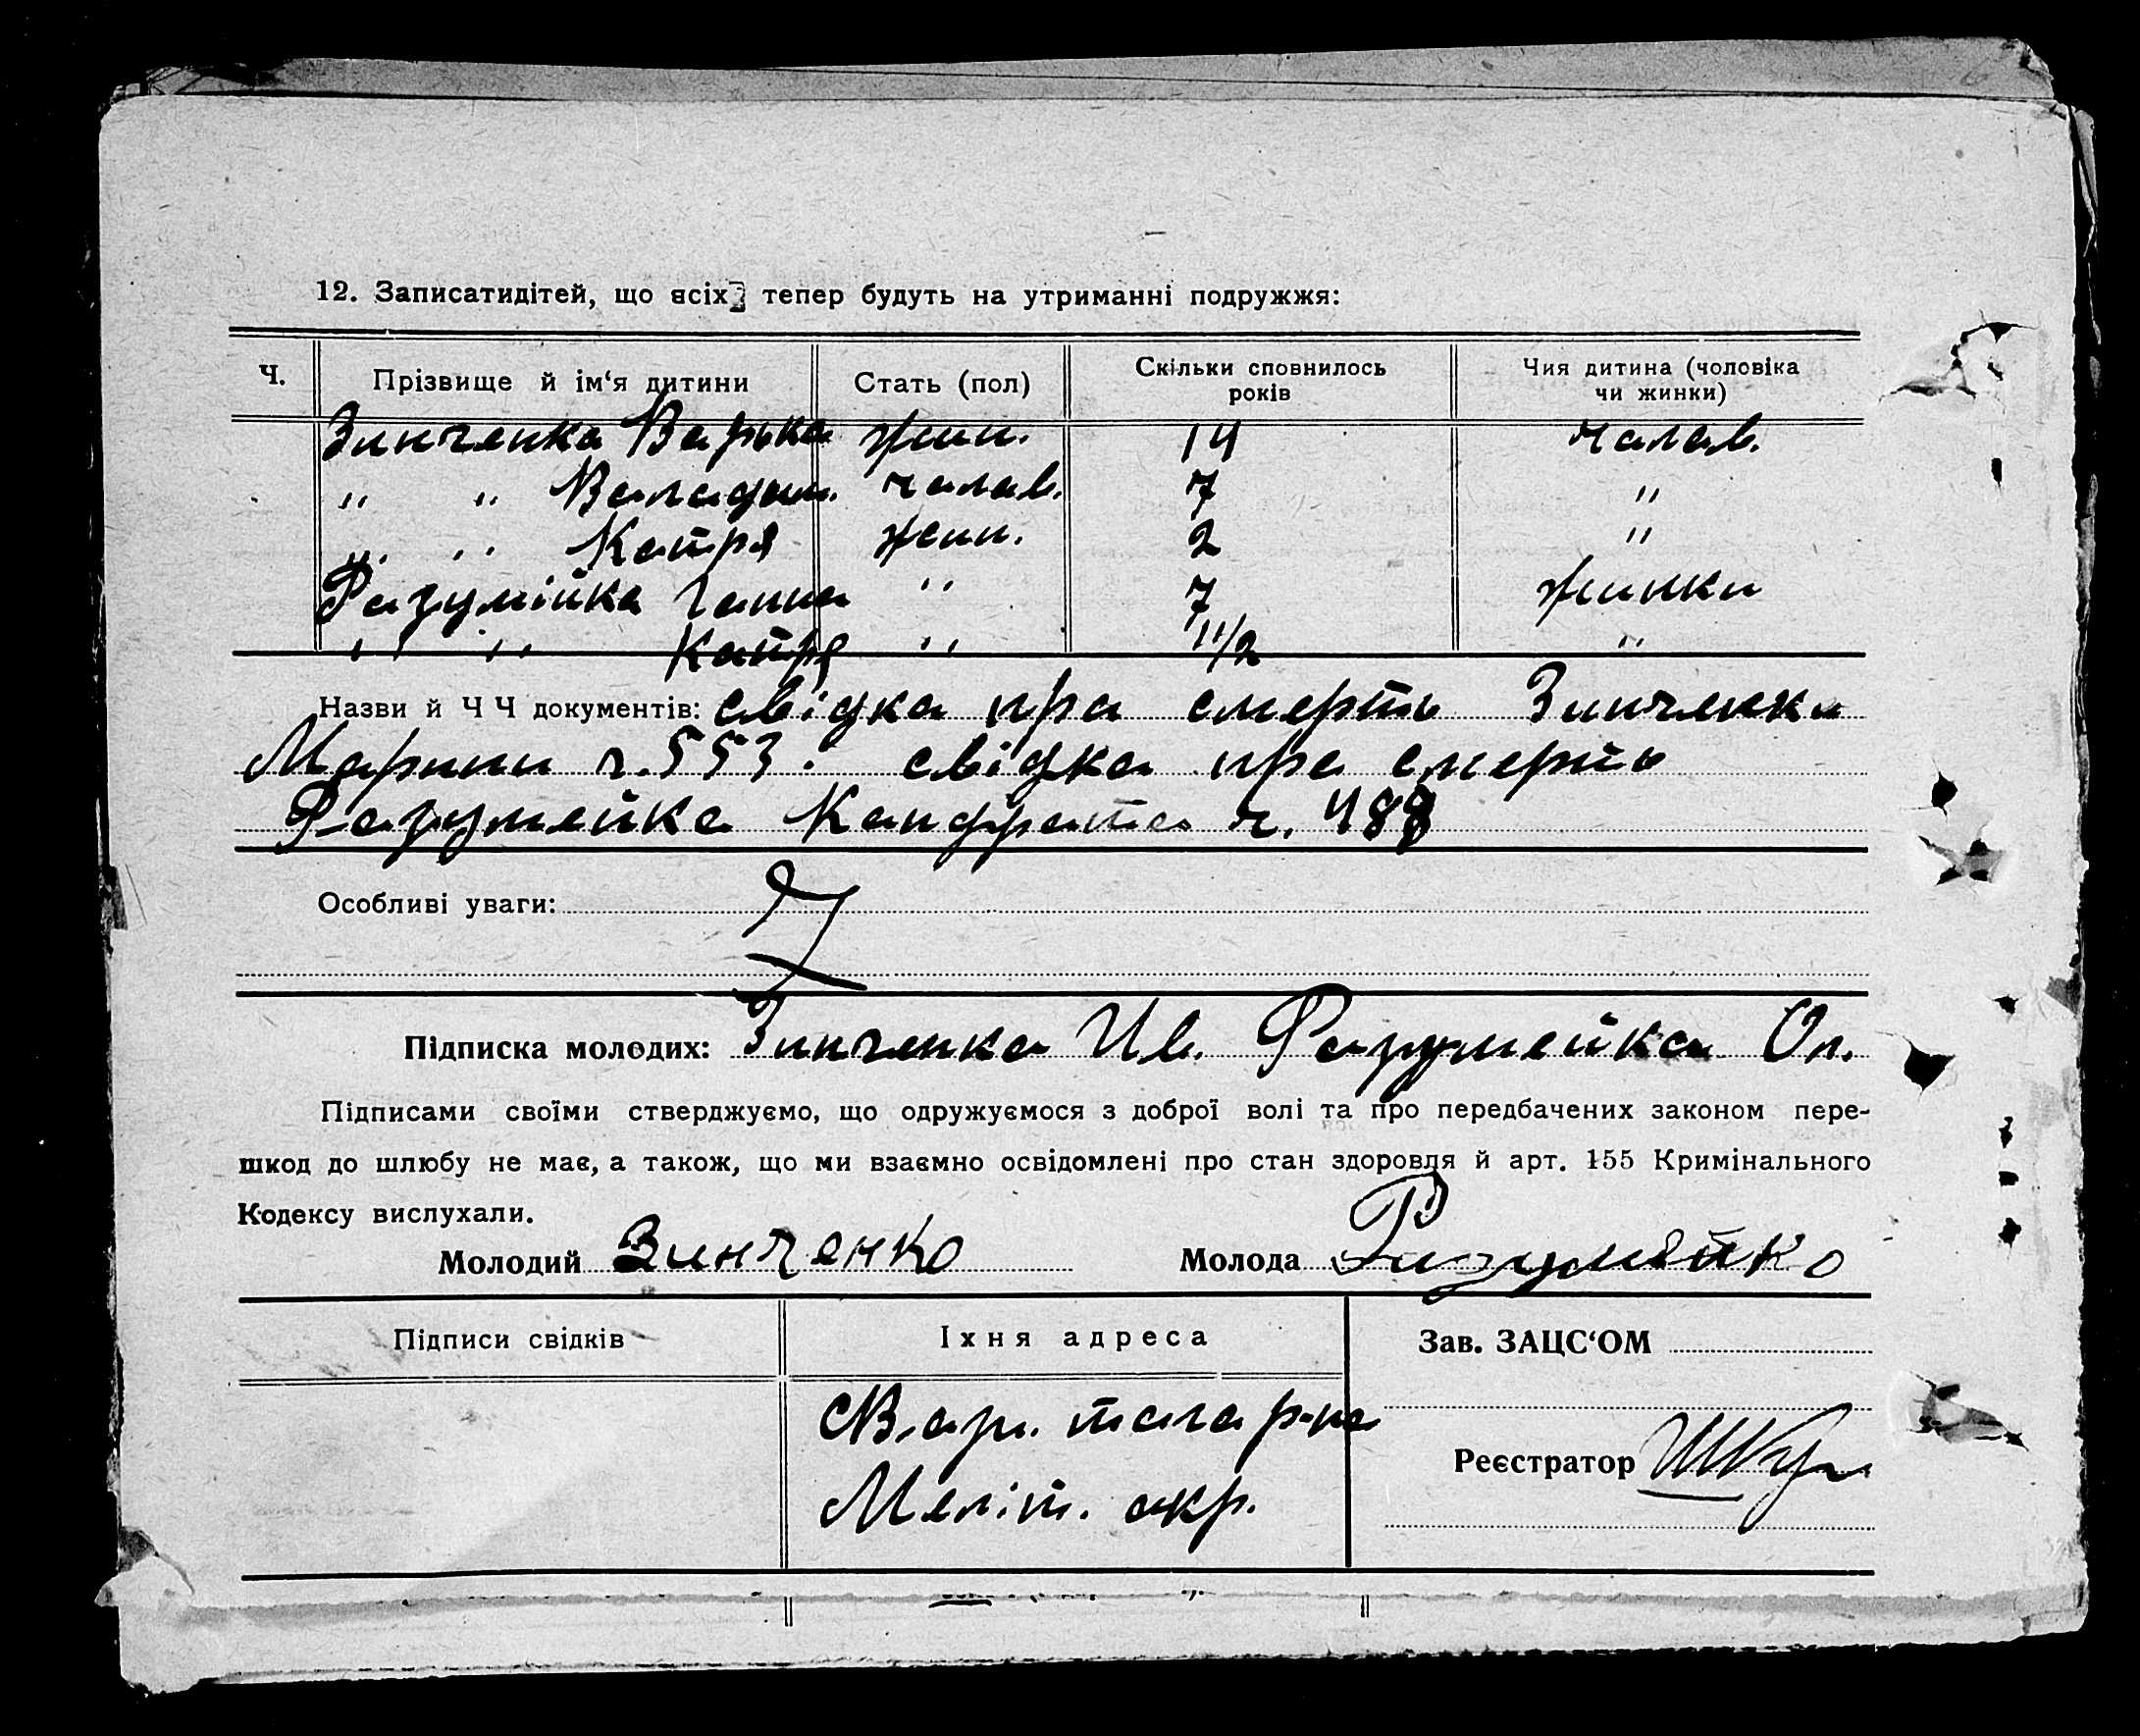 12. Записатидітей, що всіх тепер будуть на утриманні подружжя:
Ч. Прізвище й ім‘я дитини Стать (пол) Скільки сповнилось років Чия дитина (чоловіка чи жинки)
Зинченко Варька жин. 14 чолов.
" " Володим. чолов. 7 "
" " Катря жин. 2 "
Разумійко Ганна " 7 жинки
" " Катря " 1 1/2 "
Назви й Ч Ч документів: свідка про смерть Зинченки
Марини ч. 553. свідка про смерть
Разумейка Кандрата ч. 488
Особливі уваги:
Підписка молодих: Зинченко Ив. Разумейко Оп.
Підписами своїми стверджуємо, що одружуємося з доброї волі та про передбачених законом пере-
шкод до шлюбу не має, а також, що ми взаємно освідомлені про стан здоровля й арт. 155 Кримінального
Кодексу вислухали.
Молодий Зинченко Молода Разумейко
Підписи свідків Їхня адреса Зав. ЗАЦС‘ОМ
р-на
Реєстратор
Меліт. окр.